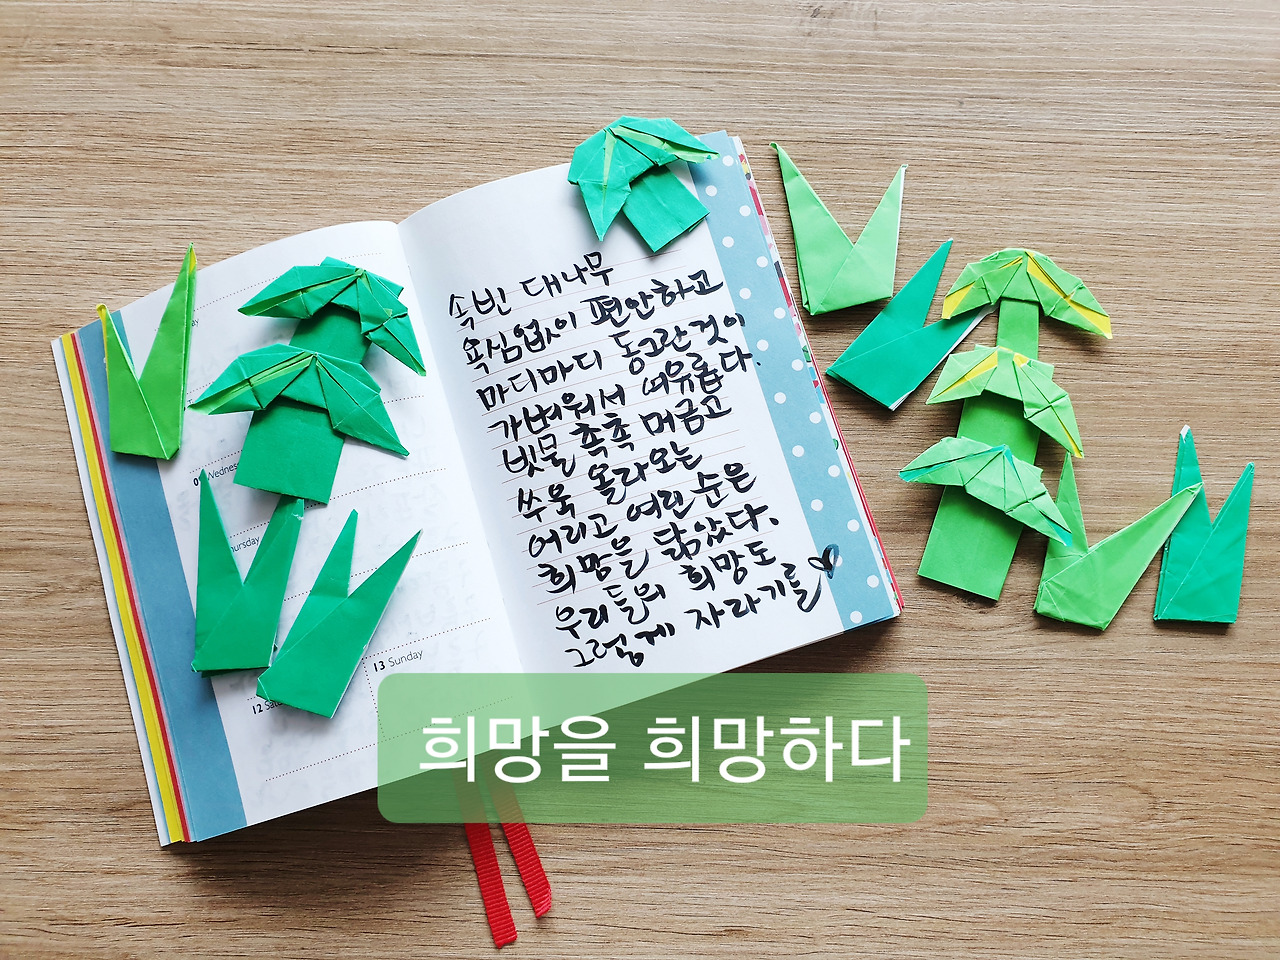 속빈 대나무
욕심없이 편안하고
마디마디 동그란것이
가벼워서 여유롭다.
빗물 촉촉 머금고
쑤욱 올라오는
어리고 여린순은
희망을 닮았다.
우리들의 희망도
그렇게 자라기를
09 Wednes
hursday
12 Sat
13 Sunday
희망을 희망하다